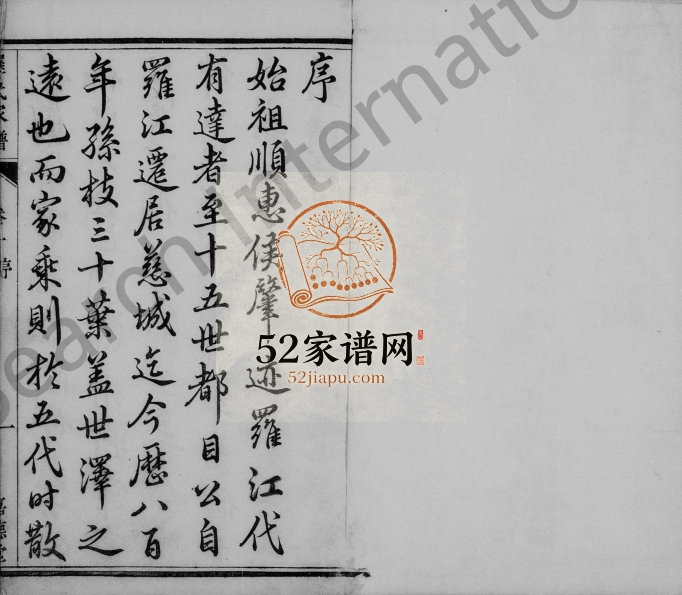 序
始祖順惠侯肇迹羅江代
有達者至十五世都目公自
羅江遷居慈城迄今歷八百
年孫枝三十葉蓋世澤之
遠也而家乘則於五代时散
卷一 序
一
52家谱网
52jiapu.com
earch Internatio